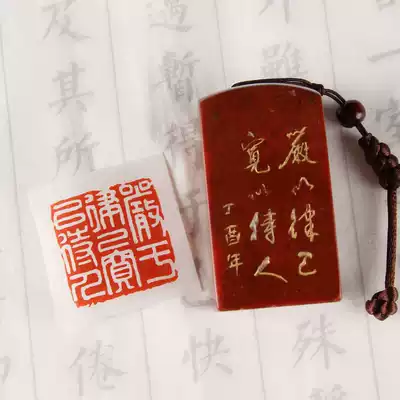 嚴以律己
寬以待人
丁酉年
嚴
律己寬
以待人
雖 殊
過暫得 快
及其所 倦